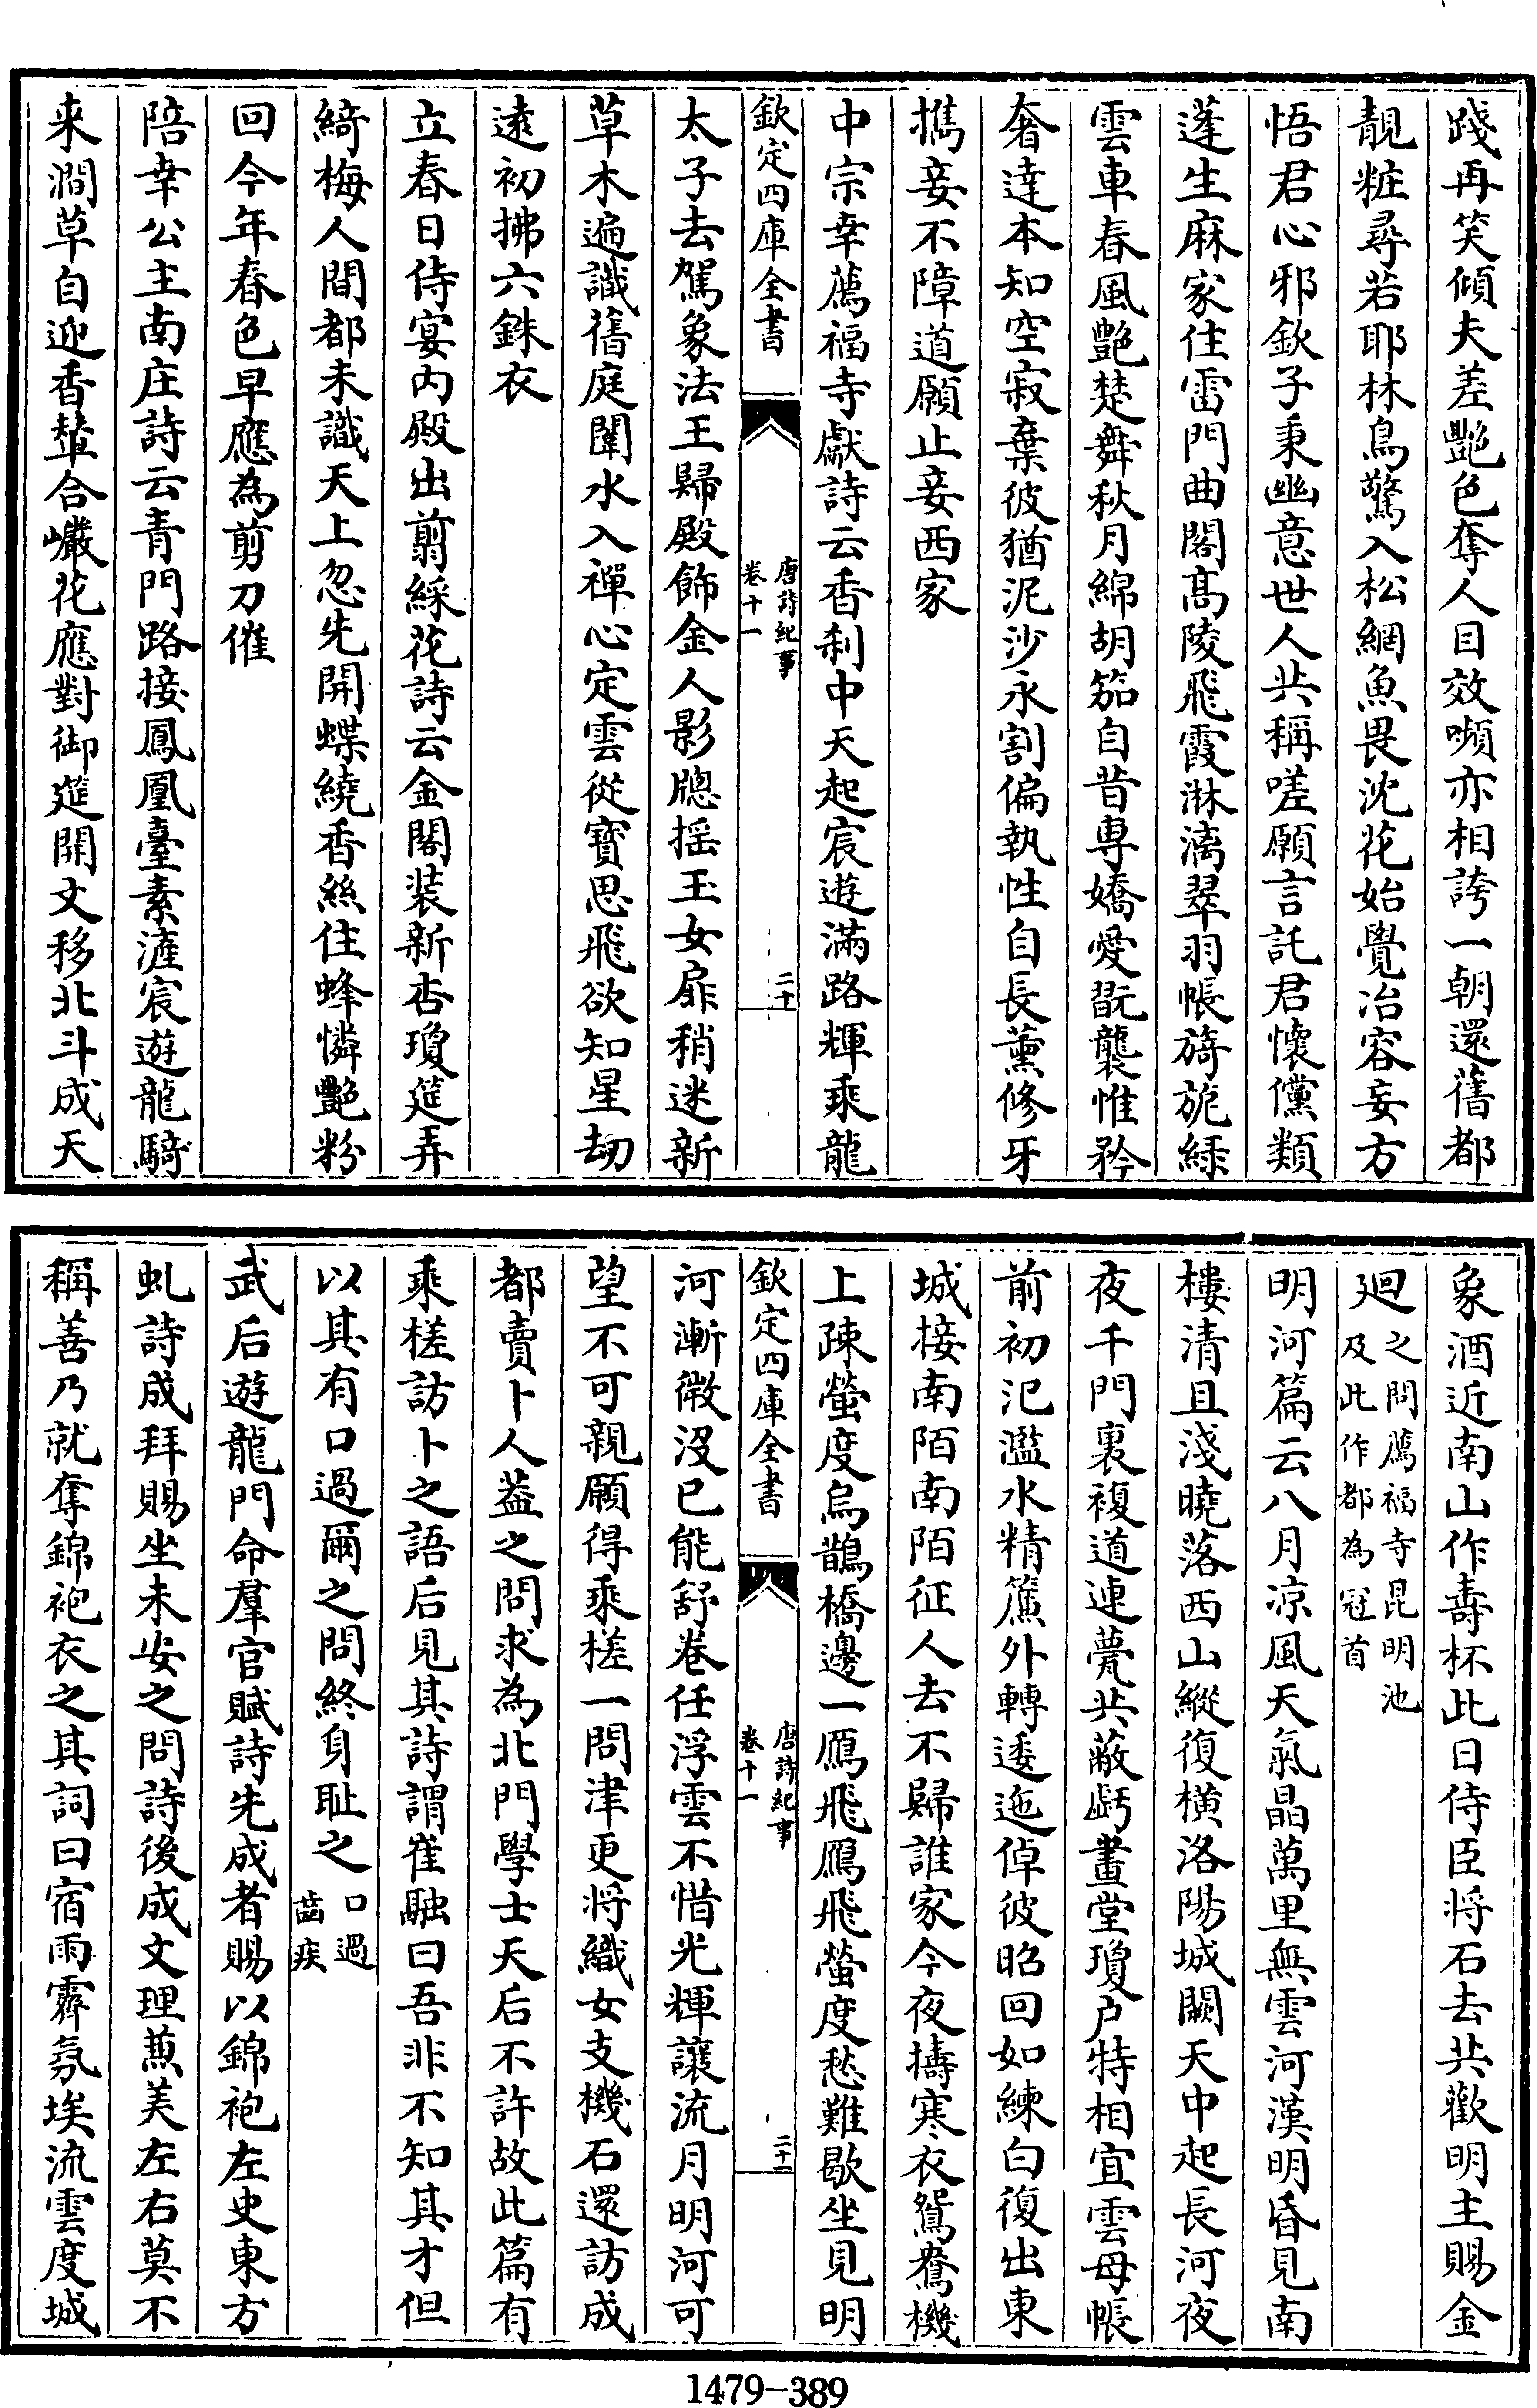 踐再笑傾夫差艷色奪人目效嚬亦相誇一朝還舊都
靚粧尋若耶林鳥驚入松網魚畏沈花始覺冶容妄方
悟君心邪欽子秉幽意世人共稱嗟願言託君懷儻類
蓬生麻家住雷門曲閣髙陵飛霞淋漓翠羽帳旖旎緑
雲車春風艷楚舞秋月綿胡笳自昔専嬌愛翫襲惟矜
奢達本知空寂棄彼猶泥沙永割偏執性自長薰修牙
攜妾不障道願止妾西家
中宗幸薦福寺獻詩云香刹中天起宸遊滿路輝乘龍
欽定四庫全書
唐詩紀事
卷十一
二十
太子去駕象法王歸殿飾金人影牕摇玉女扉稍迷新
草木遍識舊庭闈水入禪心定雲從寶思飛欲知星劫
逺初拂六銖衣
立春日侍宴内殿出翦綵花詩云金閣装新杏瓊筵弄
綺梅人間都未識天上忽先開蝶繞香絲住蜂憐艷粉
回今年春色早應為剪刀催
陪幸公主南庄詩云青門路接鳳凰臺素滻宸遊龍騎
来澗草自迎香輦合巖花應對御筵開文移北斗成天
象酒近南山作壽杯此日侍臣将石去共歡明主賜金
廻之問薦福寺昆明池
及此作都為冠首
明河篇云八月凉風天氣晶萬里無雲河漢明昏見南
樓清且淺曉落西山縱復横洛陽城闕天中起長河夜
夜千門裏複道連甍共蔽虧畫堂瓊户特相宜雲母帳
前初氾濫水精簾外轉逶迤倬彼昭回如練白復出東
城接南陌南陌征人去不歸誰家今夜擣寒衣鴛鴦機
上疎螢度烏鵲橋邊一鴈飛鴈飛螢度愁難歇坐見明
欽定四庫全書
唐詩紀事
卷十一
二十一
河漸微沒已能舒卷任浮雲不惜光輝讓流月明河可
望不可親願得乘槎一問津更将織女支機石還訪成
都賣卜人葢之問求為北門學士天后不許故此篇有
乘槎訪卜之語后見其詩謂崔融曰吾非不知其才但
以其有口過爾之問終身耻之口過
齒疾
武后遊龍門命羣官賦詩先成者賜以錦袍左史東方
虬詩成拜賜坐未安之問詩後成文理蕙美左右莫不
稱善乃就奪錦袍衣之其詞曰宿雨霽氛埃流雲度城
1479-389